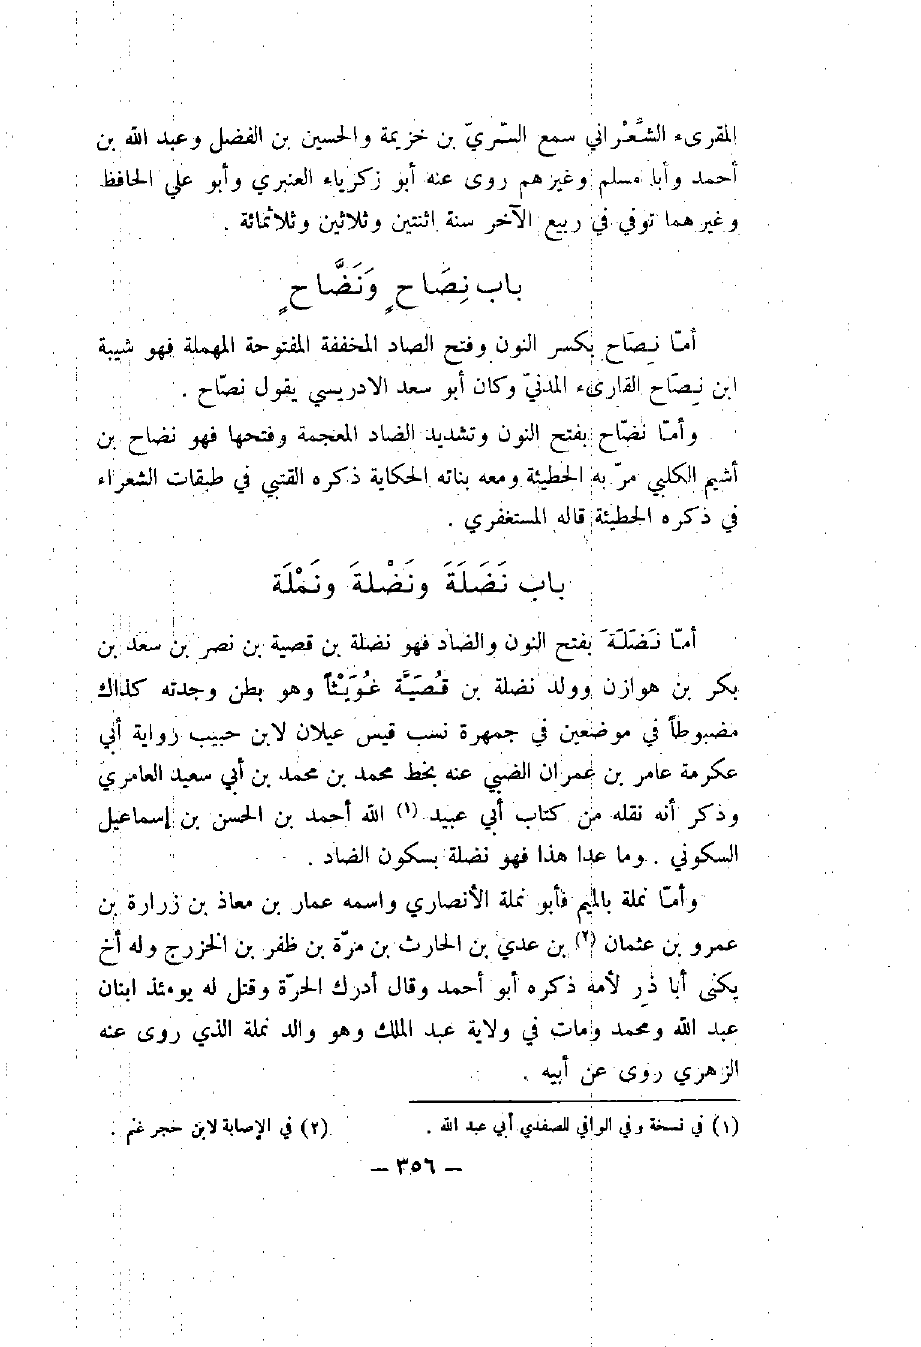 المقرىء الشَّعْراني سمع السّريّ بن خزيمة والحسين بن الفضل وعبد الله بن
أحمد وأبا مسلم وغيرهم روى عنه أبو زكرياء العنبري وأبو علي الحافظ
وغيرهما توفي في ربيع الآخر سنة اثنتين وثلاثين وثلاثمائة .
باب نِصَاحٍ وَنَضَّاحٍ
أمّا نِصَاح بكسر النون وفتح الصاد المخففة المفتوحة المهملة فهو شيبة
ابن نِصَاح القارىء المدنيّ وكان أبو سعد الادريسي يقول نصّاح .
وأمّا نضّاح بفتح النون وتشديد الضاد المعجمة وفتحها فهو نضاح بن
أشيم الكلبي مرّ به الحطيئة ومعه بناته الحكاية ذكره القتبي في طبقات الشعراء
في ذكره الحطيئة قاله المستغفري .
باب نَضَلَةَ ونَضْلةَ ونَمْلَة
أمّا نَضَلَةَ بفتح النون والضاد فهو نضلة بن قصية بن نصر بن سعد بن
بكر بن هوازن وولد نضلة بن قُصَيَّة غُوَيْثاً وهو بطن وجدته كذلك
مضبوطاً في موضعين في جمهرة نسب قيس عيلان لابن حبيب رواية أبي
عكرمة عامر بن عمران الضبي عنه بخط محمد بن محمد بن أبي سعيد العامري
وذكر أنه نقله من كتاب أبي عبيد (١) الله أحمد بن الحسن بن إسماعيل
السكوني . وما عدا هذا فهو نضلة بسكون الضاد .
وأمّا نملة بالميم فأبو نملة الأنصاري واسمه عمار بن معاذ بن زرارة بن
عمرو بن عثمان (٢) بن عدي بن الحارث بن مرّة بن ظفر بن الخزرج وله أخ
يكنى أبا ذر لأمه ذكره أبو أحمد وقال أدرك الحرّة وقتل له يومئذ ابنان
عبد الله ومحمد ومات في ولاية عبد الملك وهو والد نملة الذي روى عنه
الزهري روى عن أبيه .
(١) في نسخة وفي الوافي للصفدي أبي عبد الله . (٢) في الإصابة لابن حجر غنم .
– ٣٥٦ –